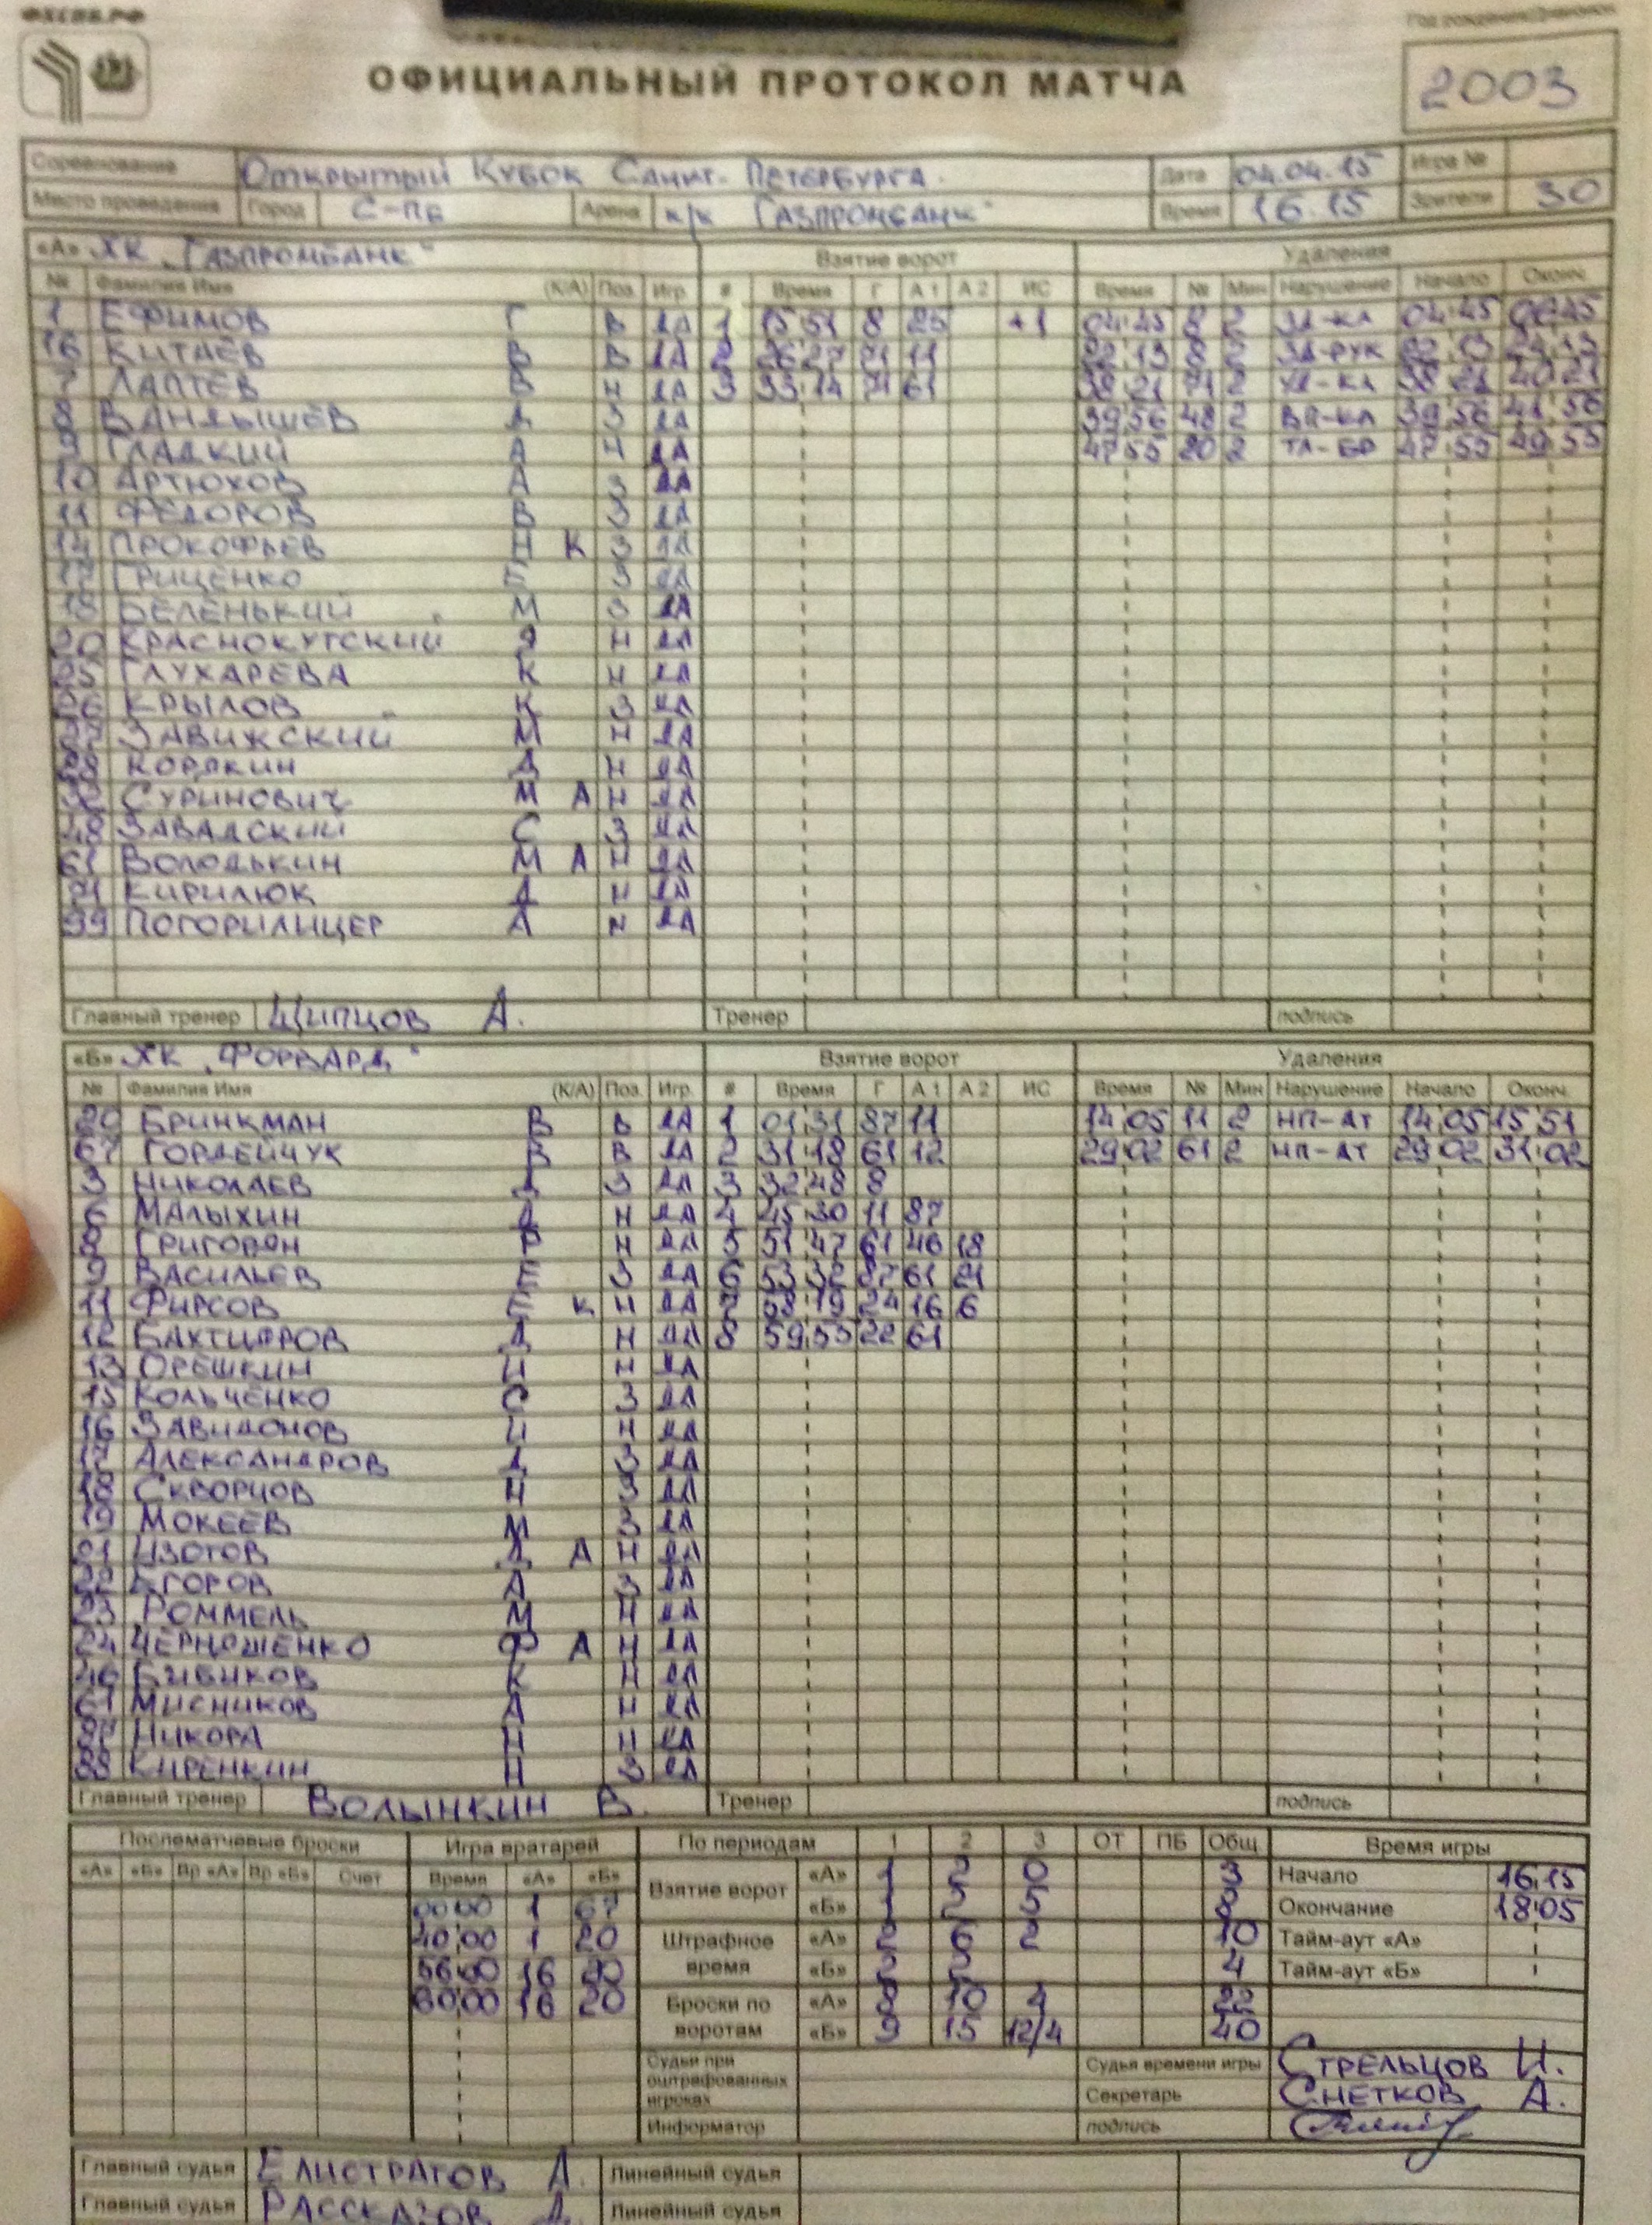 ФХСПБ.РФ
ОФИЦИАЛЬНЫЙ ПРОТОКОЛ МАТЧА
2003
Соревнование Открытый Кубок Санкт-Петербурга Дата 04.04.15 Игра №
Место проведения Город С-Пб Арена к/к Газпромбанк" Время 16.15 Зрители 30
«А» ХК „Газпромбанк" Взятие ворот Удаления
№ Фамилия Имя (К/А) Поз. Игр. # Время Г А 1 А 2 ИС Время № Мин Нарушение Начало Оконч.
1 ЕФИМОВ Г В ДА 1 15 51 8 25 +1 04 45 8 2 ЗД-КЛ 04 45 06 45
16 КИТАЕВ В В ДА 2 26 27 71 11 22 13 8 2 ЗД-РУК 22 13 24 13
7 ЛАПТЕВ В Н ДА 3 33 14 71 61 38 21 71 2 УД-КЛ 38 21 40 21
8 ВАНДЫШЕВ Д З ДА 39 56 48 2 ВП-КЛ 39 56 41 56
9 ГЛАДКИЙ А Н ДА 47 55 20 2 ТЛ-БР 47 55 49 55
10 АРТЮХОВ А З ДА
11 ФЕДОРОВ В З ДА
14 ПРОКОФЬЕВ Н К З ДА
17 ГРИЦЕНКО Е З ДА
18 БЕЛЕНЬКИЙ М З ДА
20 КРАСНОКУТСКИЙ Я Н ДА
25 ГЛУХАРЕВА К Н ДА
26 КРЫЛОВ К З ДА
ЗАВИЖСКИЙ М Н ДА
КОРЯКИН Д Н ДА
СУРИНОВИЧ М А Н ДА
48 ЗАВАДСКИЙ С З ДА
61 ВОЛОДЬКИН М А Н ДА
71 КИРИЛЮК Д Н ДА
99 ПОГОРИЛИЦЕР А Н ДА
Главный тренер Щипцов А. Тренер подпись
«Б» ХК „ФОРВАРД" Взятие ворот Удаления
№ Фамилия Имя (К/А) Поз. Игр. # Время Г А 1 А 2 ИС Время № Мин Нарушение Начало Оконч.
20 БРИНКМАН В В ДА 1 01 31 87 11 14 05 11 2 НП-АТ 14 05 15 51
67 ГОРДЕЙЧУК В В ДА 2 31 18 61 12 29 02 61 2 НП-АТ 29 02 31 02
3 НИКОЛАЕВ Д З ДА 3 32 48 8
6 МАЛЫХИН Д Н ДА 4 45 30 11 87
8 ГРИГОРЯН Р Н ДА 5 51 47 61 46 18
9 ВАСИЛЬЕВ Е З ДА 6 53 32 87 61 21
11 ФИРСОВ Е К Н ДА 7 58 19 24 16 6
12 БАХТИЯРОВ Д Н ДА 8 59 53 22 61
13 ОРЕШКИН И Н ДА
15 КОЛЬЧЕНКО С З ДА
16 ЗАВИДОНОВ И Н ДА
17 АЛЕКСАНДРОВ Д З ДА
18 СКВОРЦОВ Н З ДА
19 МОКЕЕВ М З ДА
21 ИЗОТОВ Д А Н ДА
22 ЕГОРОВ А З ДА
23 РОММЕЛЬ М Н ДА
24 ЧЕРНОШЕНКО Ф А Н ДА
46 БИБИКОВ К Н ДА
61 МИСНИКОВ А Н ДА
87 НИКОРА Н Н ДА
88 КИРЕНКИН Н З ДА
Главный тренер ВОЛЫНКИН В. Тренер подпись
Послематчевые броски Игра вратарей По периодам 1 2 3 ОТ ПБ Общ. Время игры
«А» «Б» Вр «А» Вр «Б» Счет Время «А» «Б» Взятие ворот «А» 1 2 0 3 Начало 16 15
00 00 1 67 «Б» 1 2 5 8 Окончание 18 05
40 00 1 20 Штрафное время «А» 2 6 2 10 Тайм-аут «А»
56 00 16 20 «Б» 2 2 4 Тайм-аут «Б»
60 00 16 20 Броски по воротам «А» 8 10 4 22
«Б» 9 15 12/4 40
Судьи при оштрафованных игроках Судья времени игры Стрельцов И.
Секретарь Снетков А.
Информатор подпись
Главный судья Елистратов А. Линейный судья
Главный судья Рассказов Д. Линейный судья